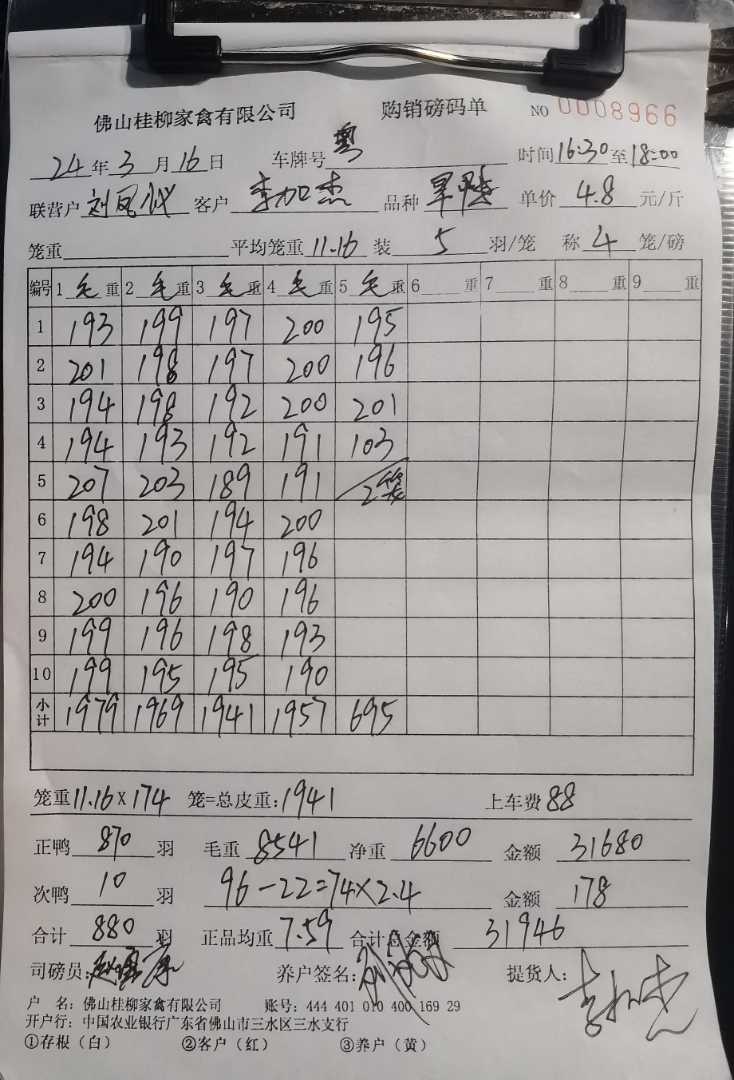 佛山桂柳家禽有限公司 购销磅码单 NO 0008966
24年3月16日 车牌号 粤 时间16:30至18:00
联营户 刘凤仪 客户 李加杰 品种 单价 4.8 元/斤
笼重 平均笼重11.16 装 5 羽/笼 称 4 笼/磅
编号 1 毛 重 2 毛 重 3 毛 重 4 毛 重 5 毛 重 6 重 7 重 8 重 9 重
1 193 199 197 200 195
2 201 198 197 200 196
3 194 198 192 200 201
4 194 193 192 191 103
5 207 203 189 191 2笼
6 198 201 194 200
7 194 190 197 196
8 200 196 190 196
9 199 196 198 193
10 199 195 195 190
小计 1979 1969 1941 1957 695
笼重11.16×174 笼=总皮重:1941 上车费88
正鸭 870 羽 毛重 8541 净重 6600 金额 31680
次鸭 10 羽 96-22=74×2.4 金额 178
合计 880 羽 正品均重 7.59 合计总金额 31946
司磅员: 养户签名: 提货人: 李加杰
户 名: 佛山桂柳家禽有限公司 账号: 444 401 010 400 169 29
开户行: 中国农业银行广东省佛山市三水区三水支行
①存根（白） ②客户（红） ③养户（黄）